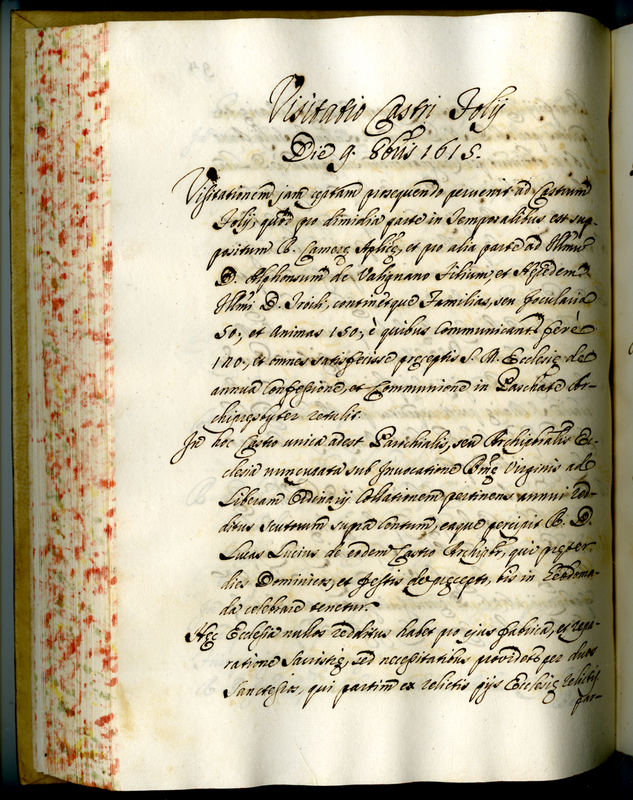 Visitatio Castri Joly
Die 9. 8bris 1615.
Visitationem jam ceptam prosequendo pervenit ad Castrum
Joly, quod pro dimidia parte in temporalibus est sup-
positum R. Camerę Aplicę, et pro alia parte ad Illmus
D. Alphonsum de Valignano filium, et Hęredem
Illmi D. Jioli, continetque Familias, seu focularia
50, et Animas 150, è quibus Communicant ferè
120, et omnes satisfecisse pręceptis S. R. Ecclesię de
annua Confessione, et Communione in Paschate Ar-
chipresbyter retulit.
In hoc Castro unica adest Parochialis, seu Archipbralis Ec-
clesia nuncupata sub Invocatione Bmę Virginis ad
Liberam Ordinarij Collationem pertinens annui red-
ditus scutorum supra centum, eaque percipit R. D.
Lucas Lucius de eodem Castro Archipbr, qui pręter
dies Dominicos, et festis de pręcepto, bis in hebdoma-
da celebrare tenetur.
Hęc Ecclesia nullos redditus habet pro ejus fabrica, et repa-
ratione Sacristię, sed necessitatibus providetr per duos
Sanctesios, qui partim ex relictis pijs Ecclesię relictis
par-